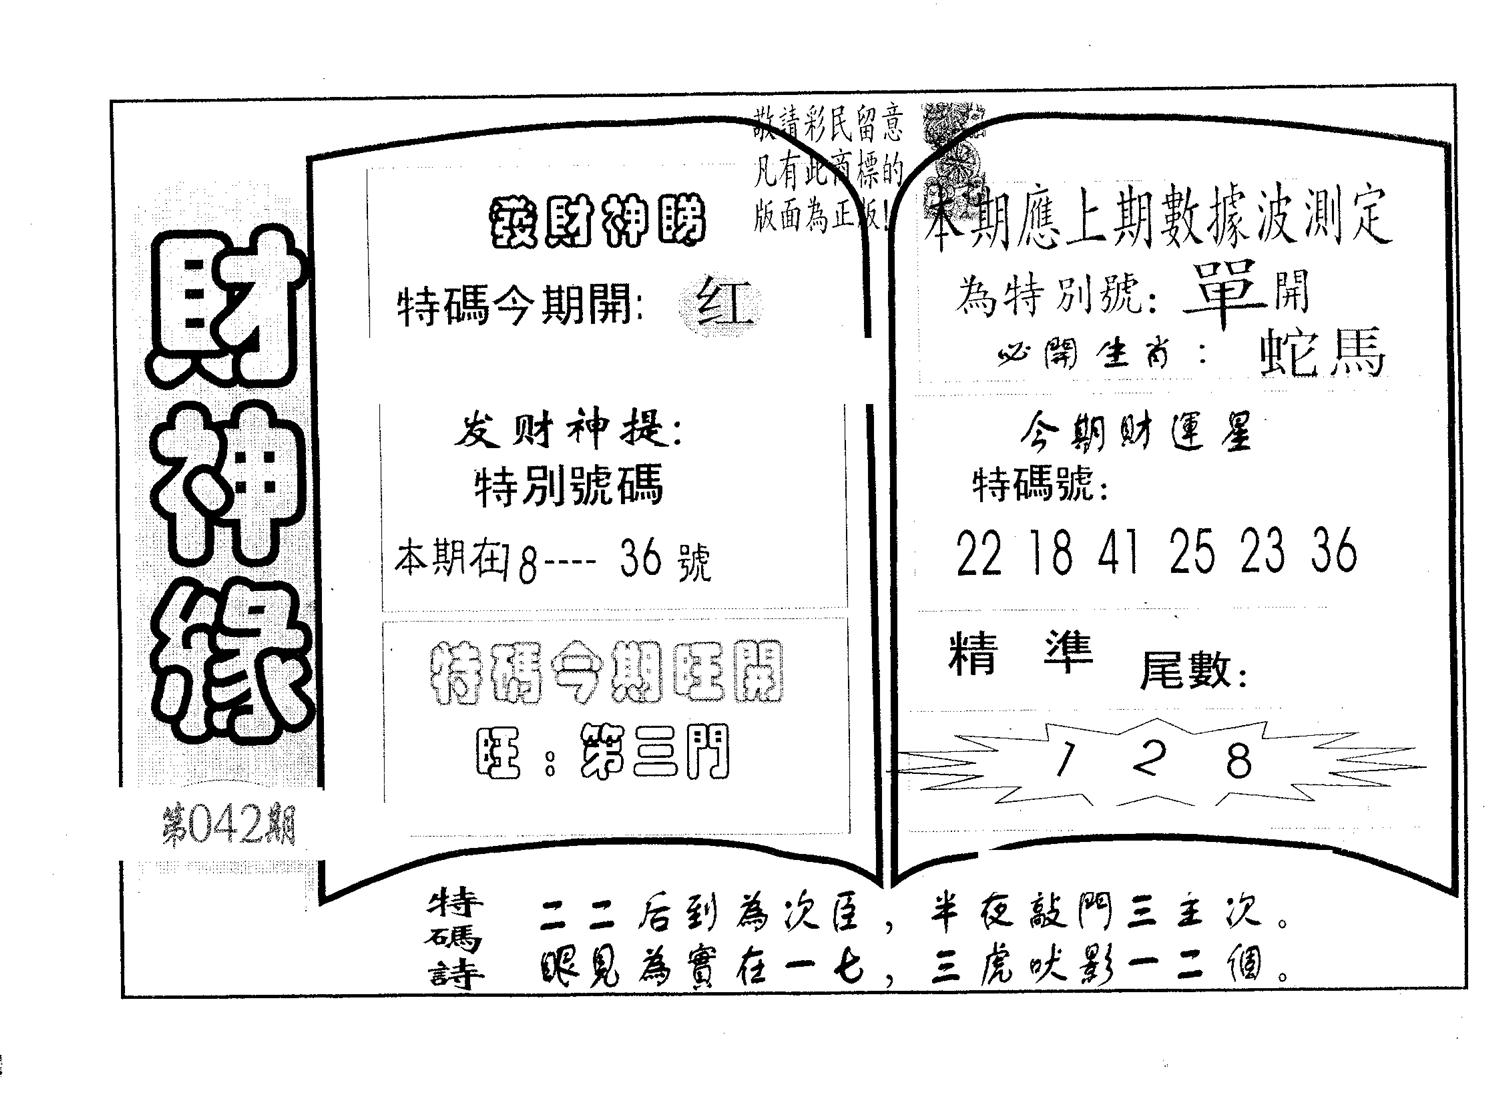 財神緣
第042期
敬請彩民留意
凡有此商標的
版面為正版!
發財神睇
特碼今期開: 红
发财神提:
特別號碼
本期在18----36號
特碼今期旺開
旺:第三門
本期應上期數據波測定
為特別號: 單開
必開生肖: 蛇馬
今期財運星
特碼號:
22 18 41 25 23 36
精準 尾數:
1 2 8
特碼詩
二二后到為次臣,半夜敲門三主次。
眼見為實在一七,三虎吠影一二個。